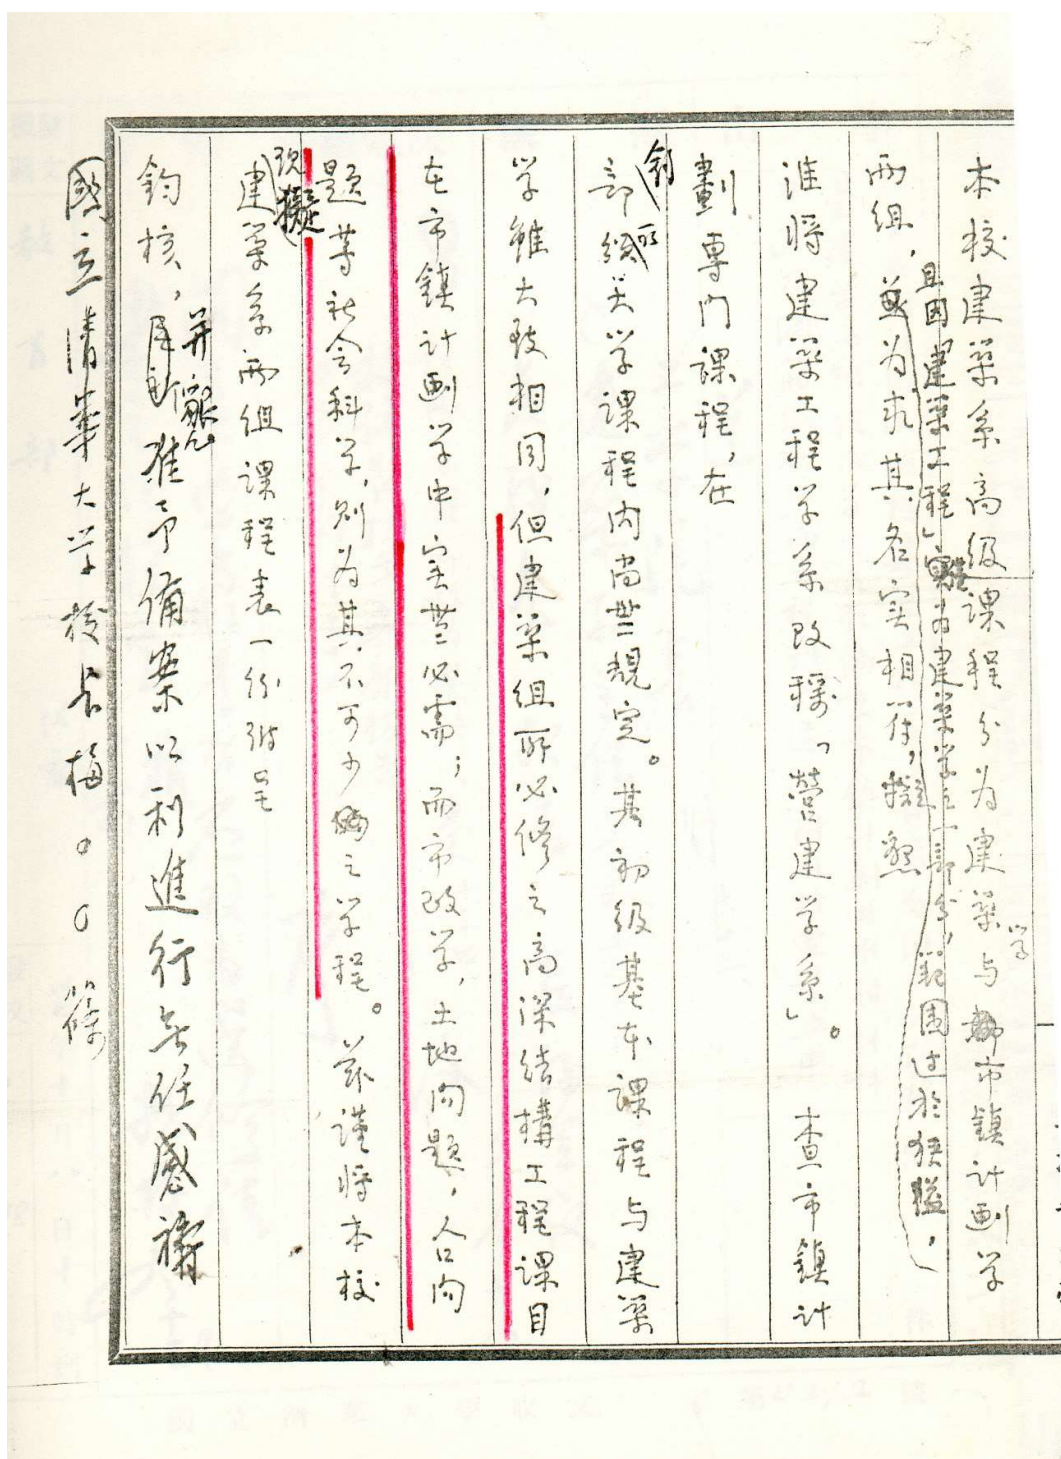 本校建築系高級課程分為建築學與市鎮計劃學
且因「建築工程」實為建築學之一部分，範圍过於狹隘，
兩組，茲为求其名实相符，擬懇
准将建築工程学系改称「營建学系」。 查市鎮計
劃專門課程，在
鈞部頒大学課程内尚無規定。其初级基本課程与建築
学雖大致相同，但建築组所必修之高深结構工程課目
在市鎮計劃学中实無必需；而市政学，土地问题，人口问
题等社会科学，则为其不可少之学程。茲谨将本校
现擬
建築系兩组課程表一份附呈
鈞核，并懇准予備案以利進行無任感禱
國立清華大学校長梅〇〇篠